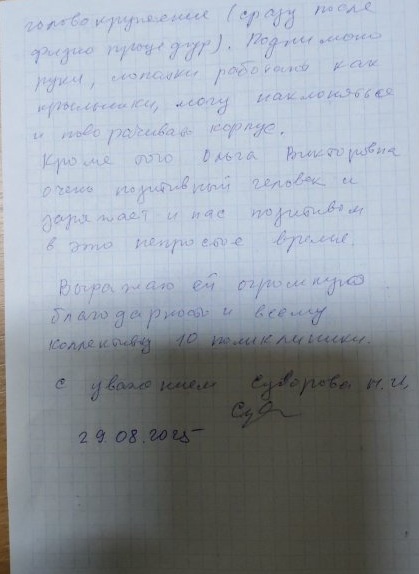 головокружения (сразу после
физио процедур). Поднимаю
руки, лопатки работают как
крылышки, могу наклоняться
и поворачивать корпус.
Кроме того Ольга Викторовна
очень позитивный человек и
заряжает и нас позитивом
в это непростое время.
Выражаю ей огромную
благодарность и всему
коллективу 10 поликлиники.
С уважением Суворова Н.И.
29.08.2025